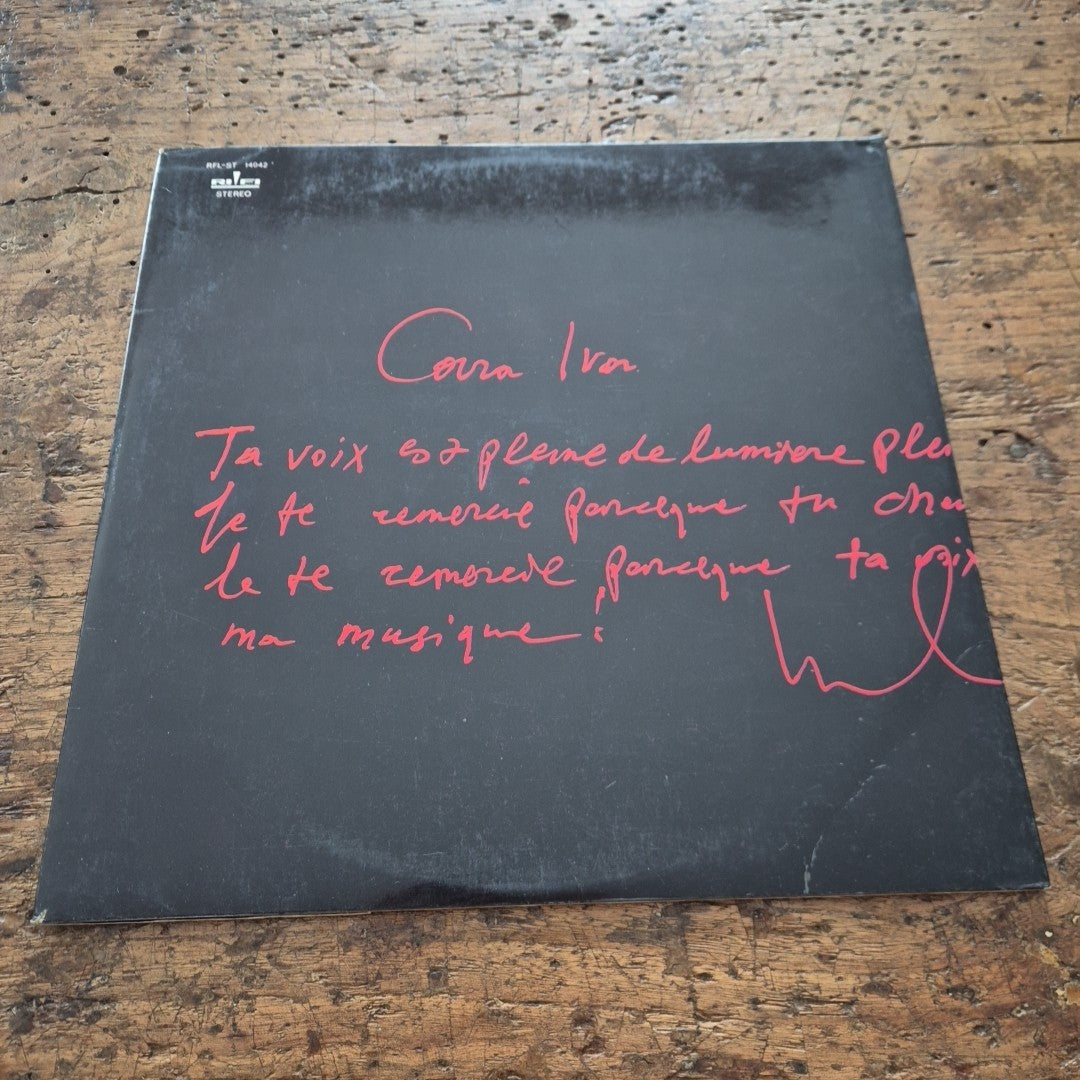 RFL-ST 14042
RIFI
STEREO
Cara Iva
Ta voix est pleine de lumiere plei
Je te remercie parceque tu chan
Je te remercie parceque ta voix
ma musique!